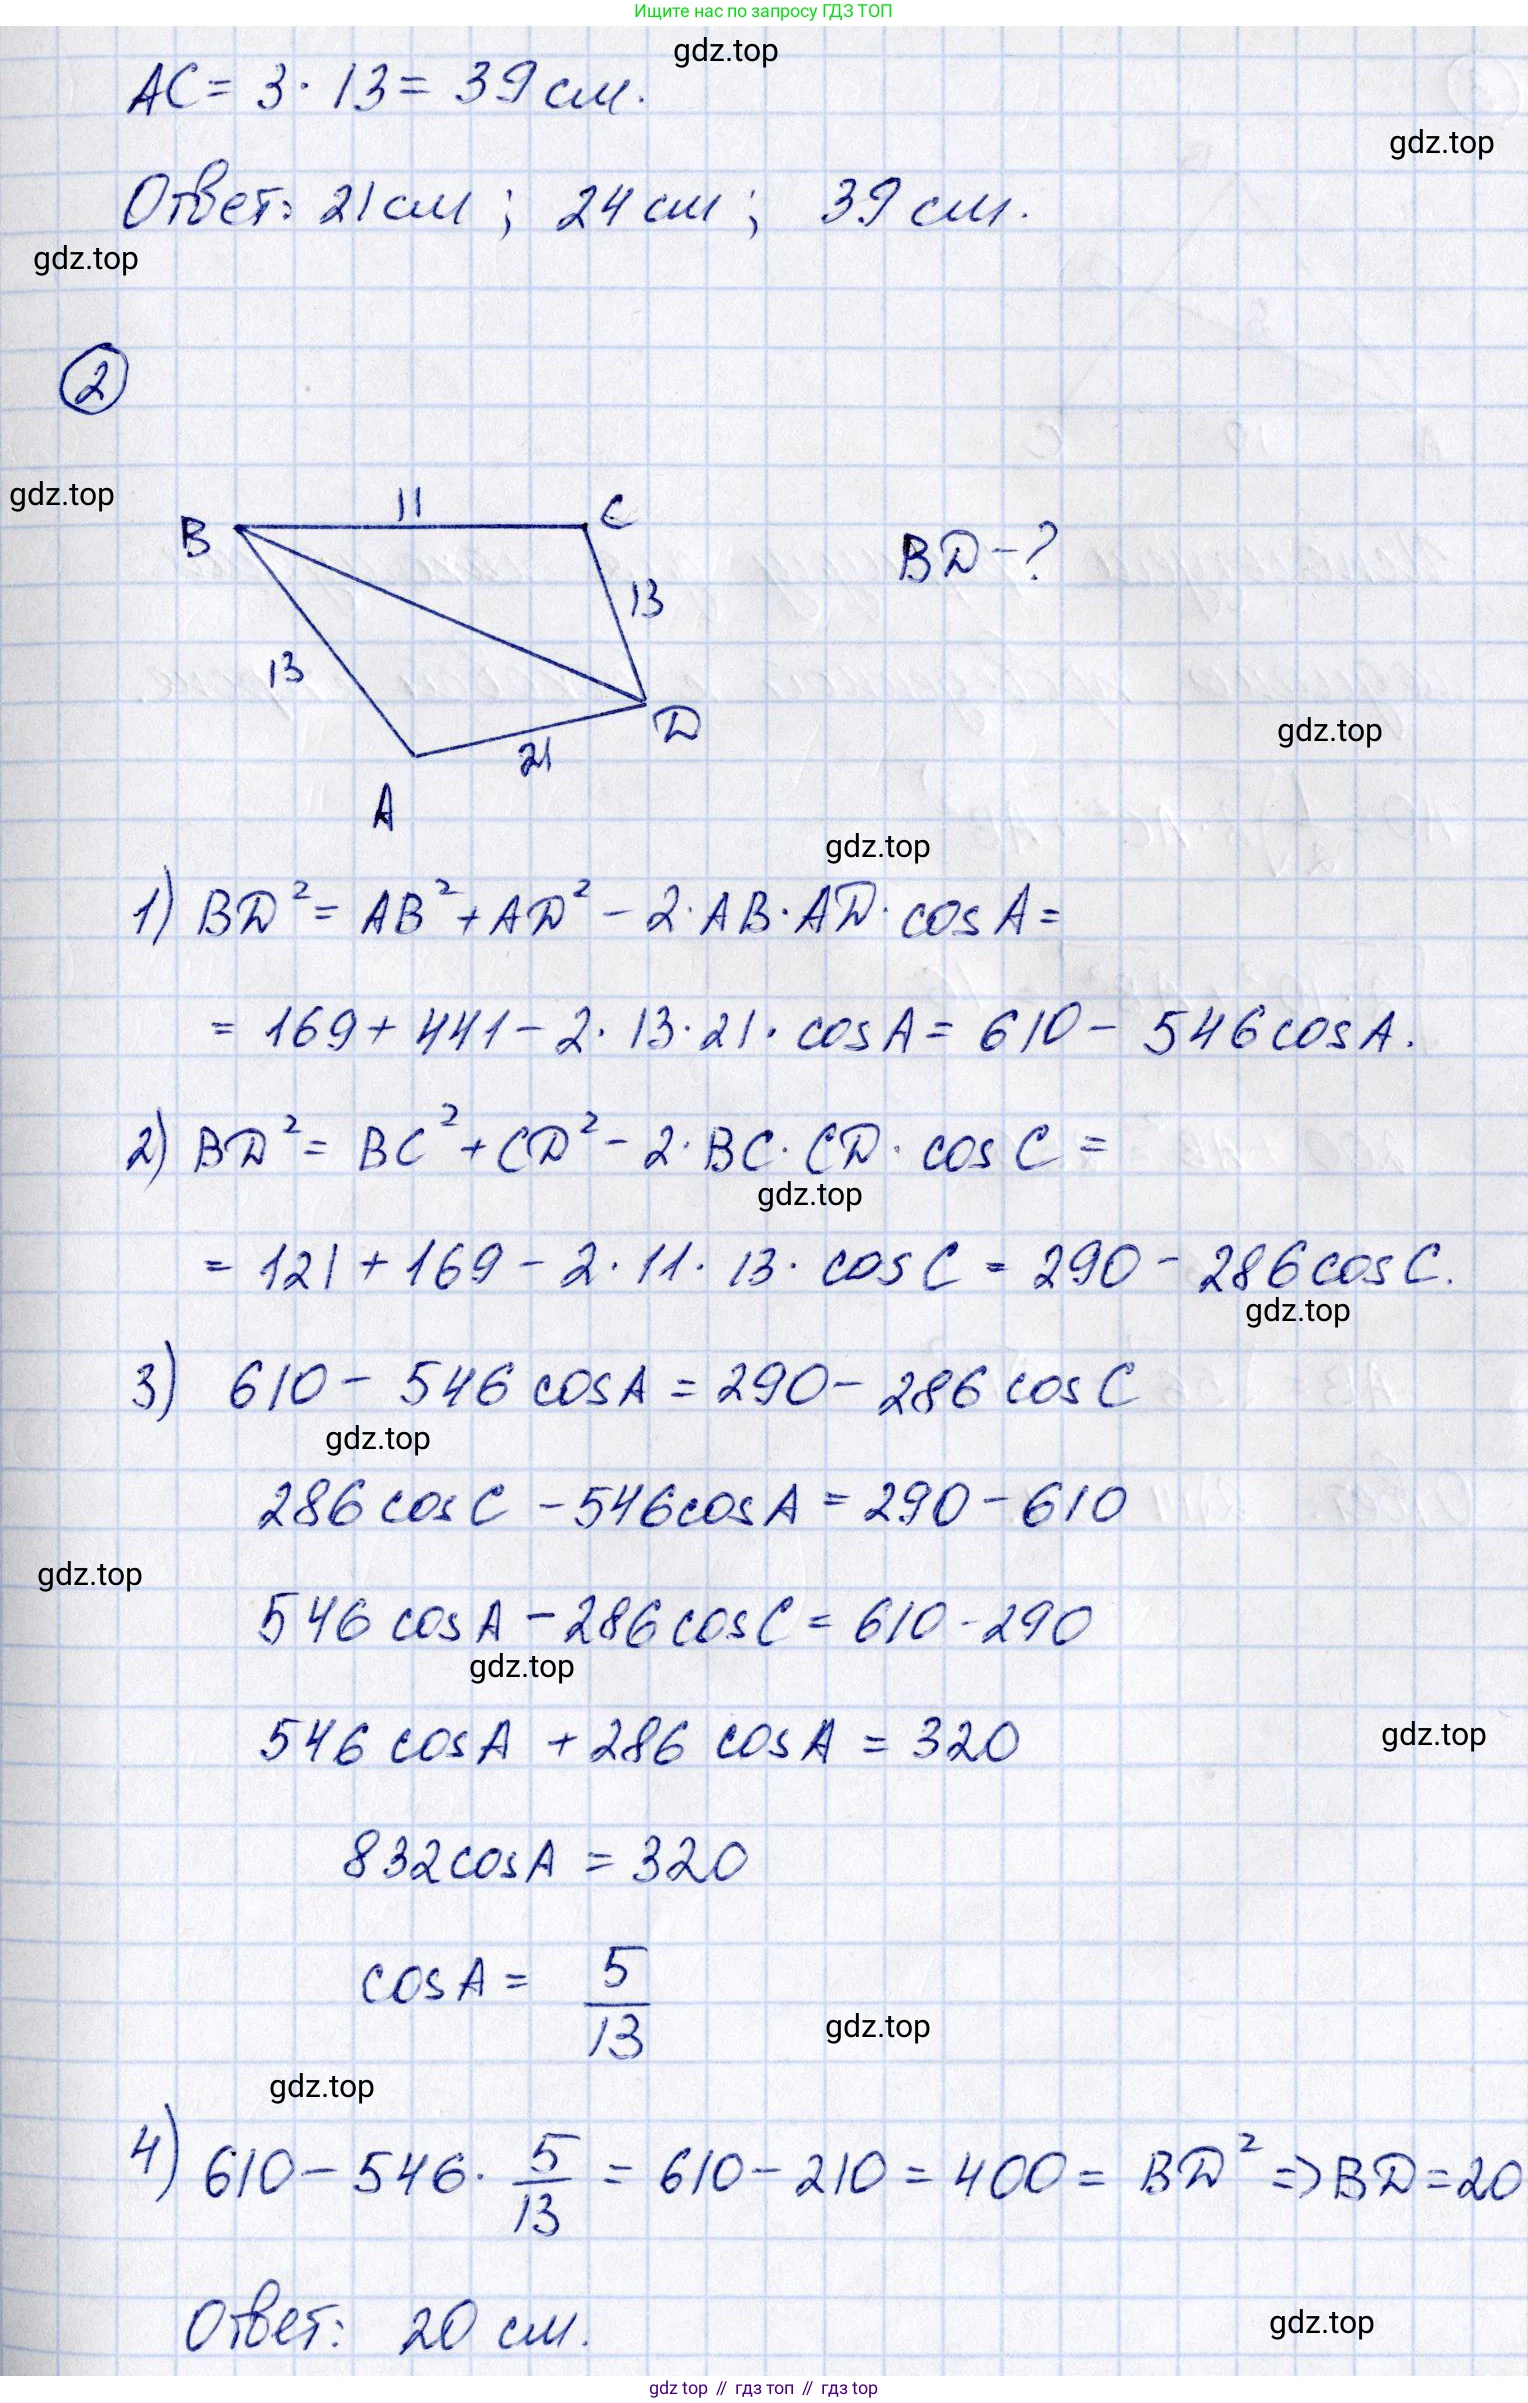 Ищите нас по запросу ГДЗ ТОП
gdz.top
AC = 3 · 13 = 39 см.
gdz.top
Ответ: 21 см ; 24 см ; 39 см.
gdz.top
2
gdz.top
11
B
C
BD - ?
13
13
D
gdz.top
21
A
gdz.top
1) BD² = AB² + AD² - 2 · AB · AD · cos A =
= 169 + 441 - 2 · 13 · 21 · cos A = 610 - 546 cos A.
2) BD² = BC² + CD² - 2 · BC · CD · cos C =
gdz.top
= 121 + 169 - 2 · 11 · 13 · cos C = 290 - 286 cos C.
gdz.top
3) 610 - 546 cos A = 290 - 286 cos C
gdz.top
286 cos C - 546 cos A = 290 - 610
gdz.top
546 cos A - 286 cos C = 610 - 290
gdz.top
546 cos A + 286 cos A = 320
gdz.top
832 cos A = 320
cos A = 5/13
gdz.top
gdz.top
4) 610 - 546 · 5/13 = 610 - 210 = 400 = BD² => BD = 20
Ответ: 20 см.
gdz.top
gdz top // гдз топ // гдз top